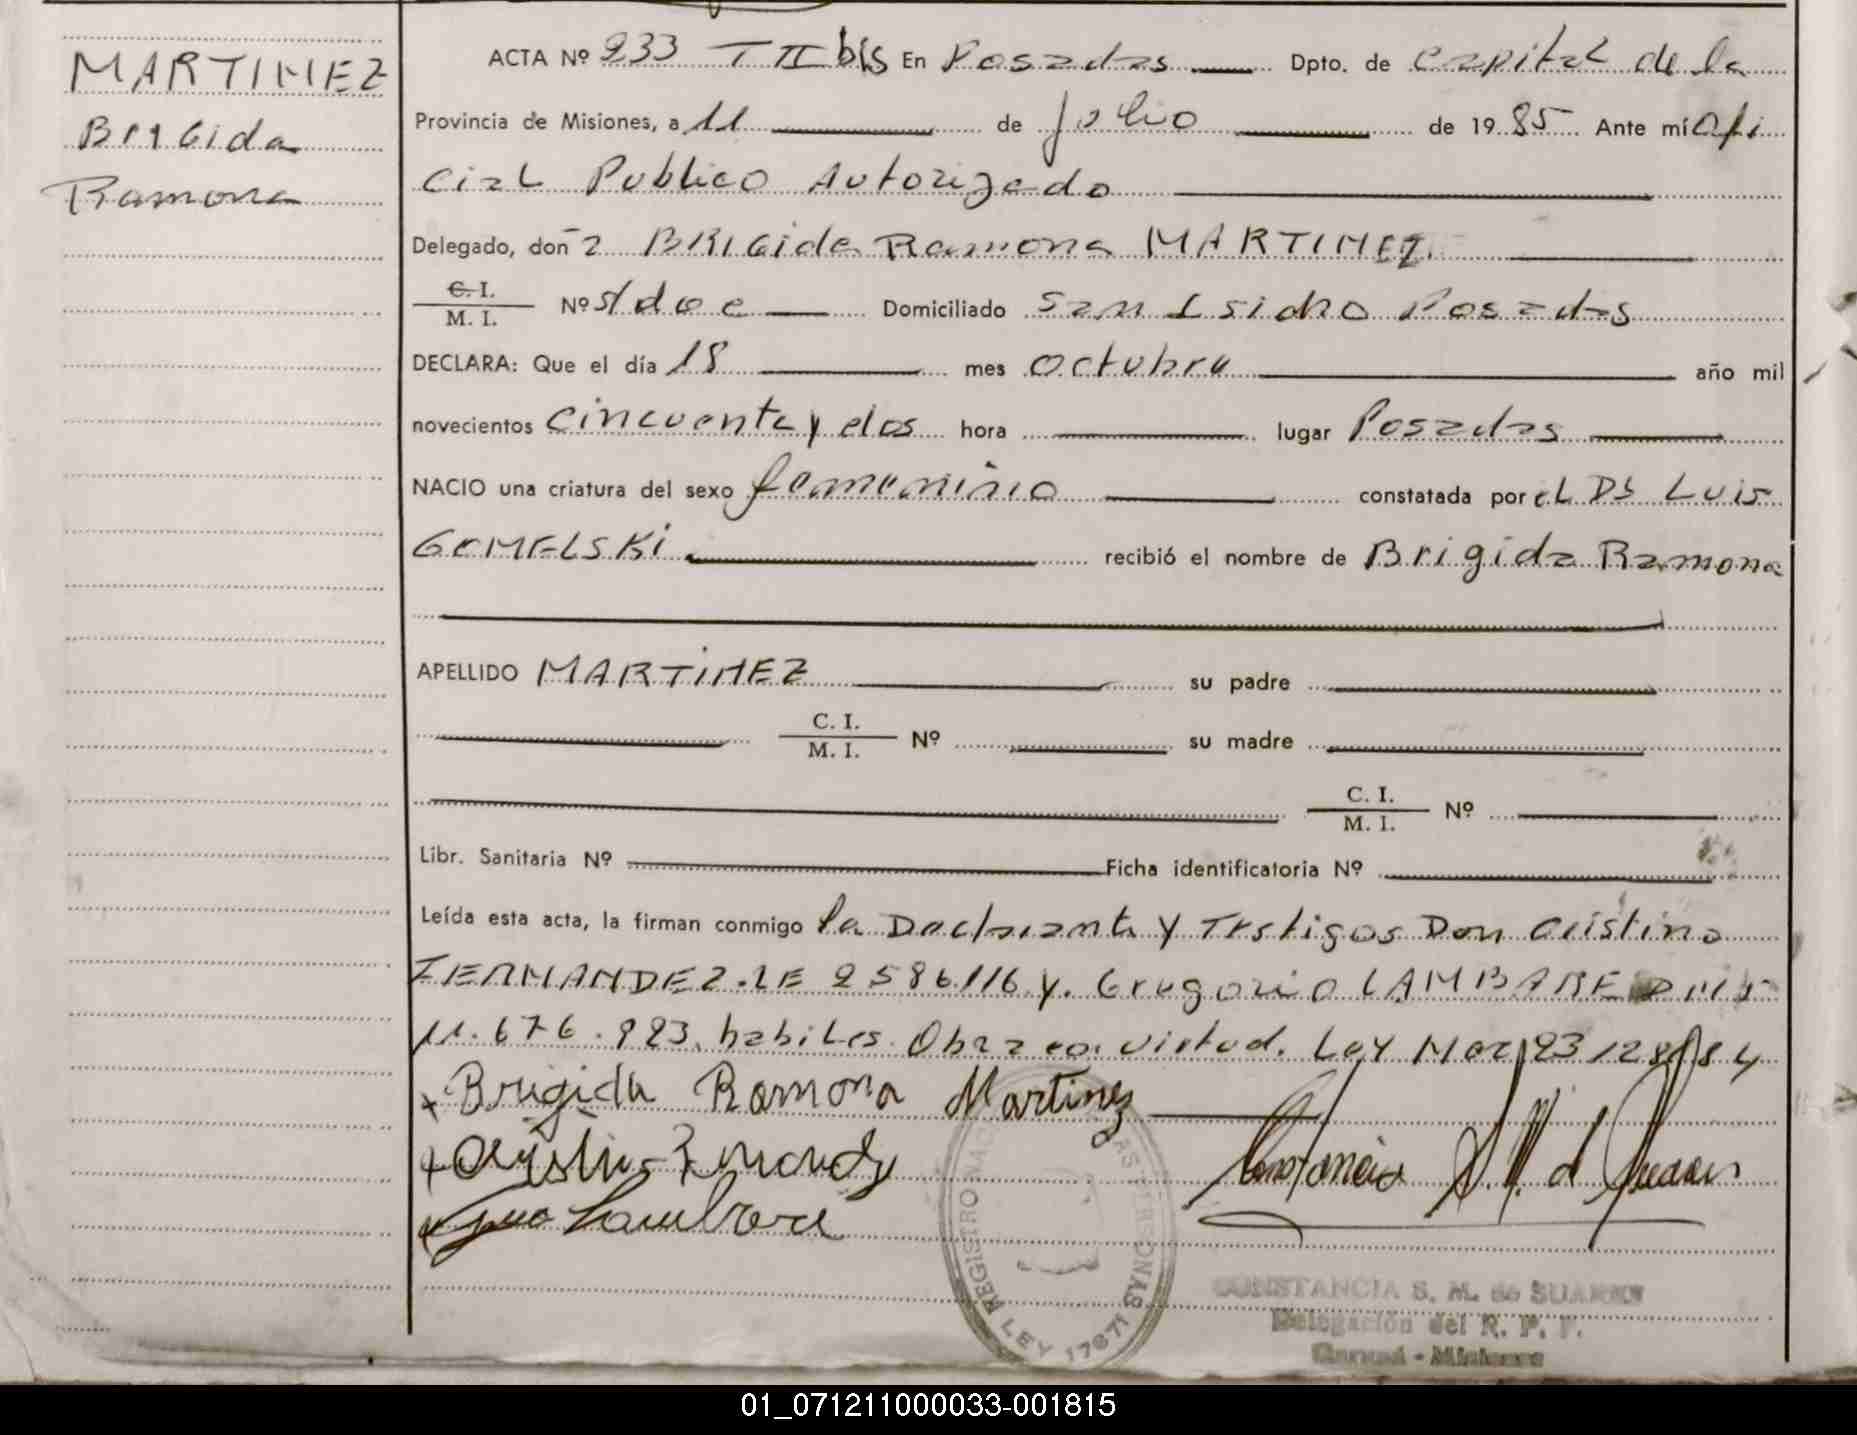 MARTINEZ
Brigida
Ramona
ACTA Nº 233 T II bis En Posadas Dpto. de Capital de la
Provincia de Misiones, a 11 de Julio de 1985 Ante mí Ofi
cial Publico Autorizado
Delegado, doña BRIGida Ramona MARTINEZ
C. I.
M. I. Nº s/doc Domiciliado San Isidro Posadas
DECLARA: Que el día 18 mes Octubre año mil
novecientos cincuenta y dos hora lugar Posadas
NACIO una criatura del sexo femenino constatada por el Dr Luis
GOMELSKI recibió el nombre de Brigida Ramona
APELLIDO MARTINEZ su padre
C. I.
M. I. Nº su madre
C. I.
M. I. Nº
Libr. Sanitaria Nº Ficha identificatoria Nº
Leída esta acta, la firman conmigo la Declarante y Testigos Don Cristino
FERNANDEZ. LE 2586116 y. Gregorio LAMBARE DNI
11.676.923. habiles. Obra en virtud. Ley 23128/84
Brigida Ramona Martinez
Constancia S. M. d Suarez
REGISTRO NAC AS PERSONAS
LEY 17671
CONSTANCIA S. M. de SUAREZ
Delegación del R. P. P.
Misiones
01_071211000033-001815